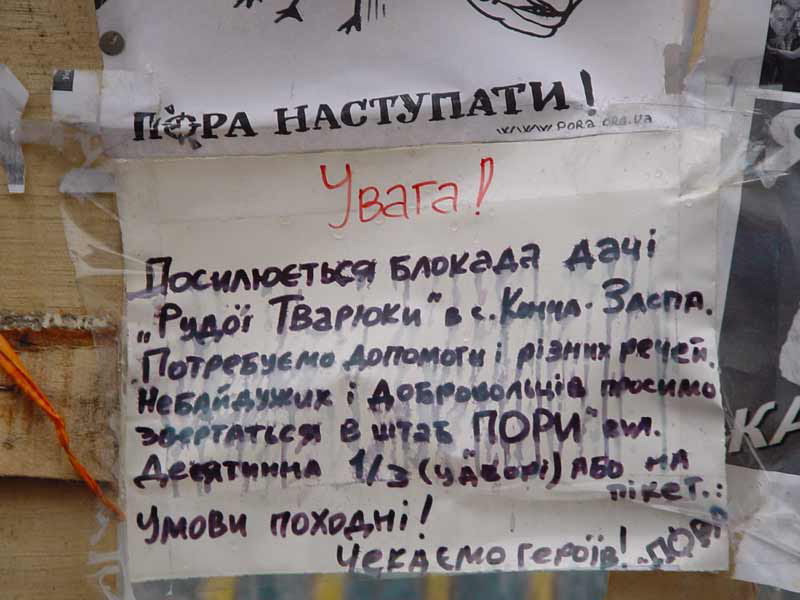 ПОРА НАСТУПАТИ!
www.pora.org.ua
Увага!
Посилюється блокада дачі
„Рудої Тварюки" в с. Конча-Заспа.
Потребуємо допомоги і різних речей.
Небайдужих і добровольців просимо
звертаться в штаб ПОРИ" вул.
Десятинна 1/3 (у дворі) або на
пікет.:
Умови походні!
Чекаємо героїв! „ПОРА"
КА